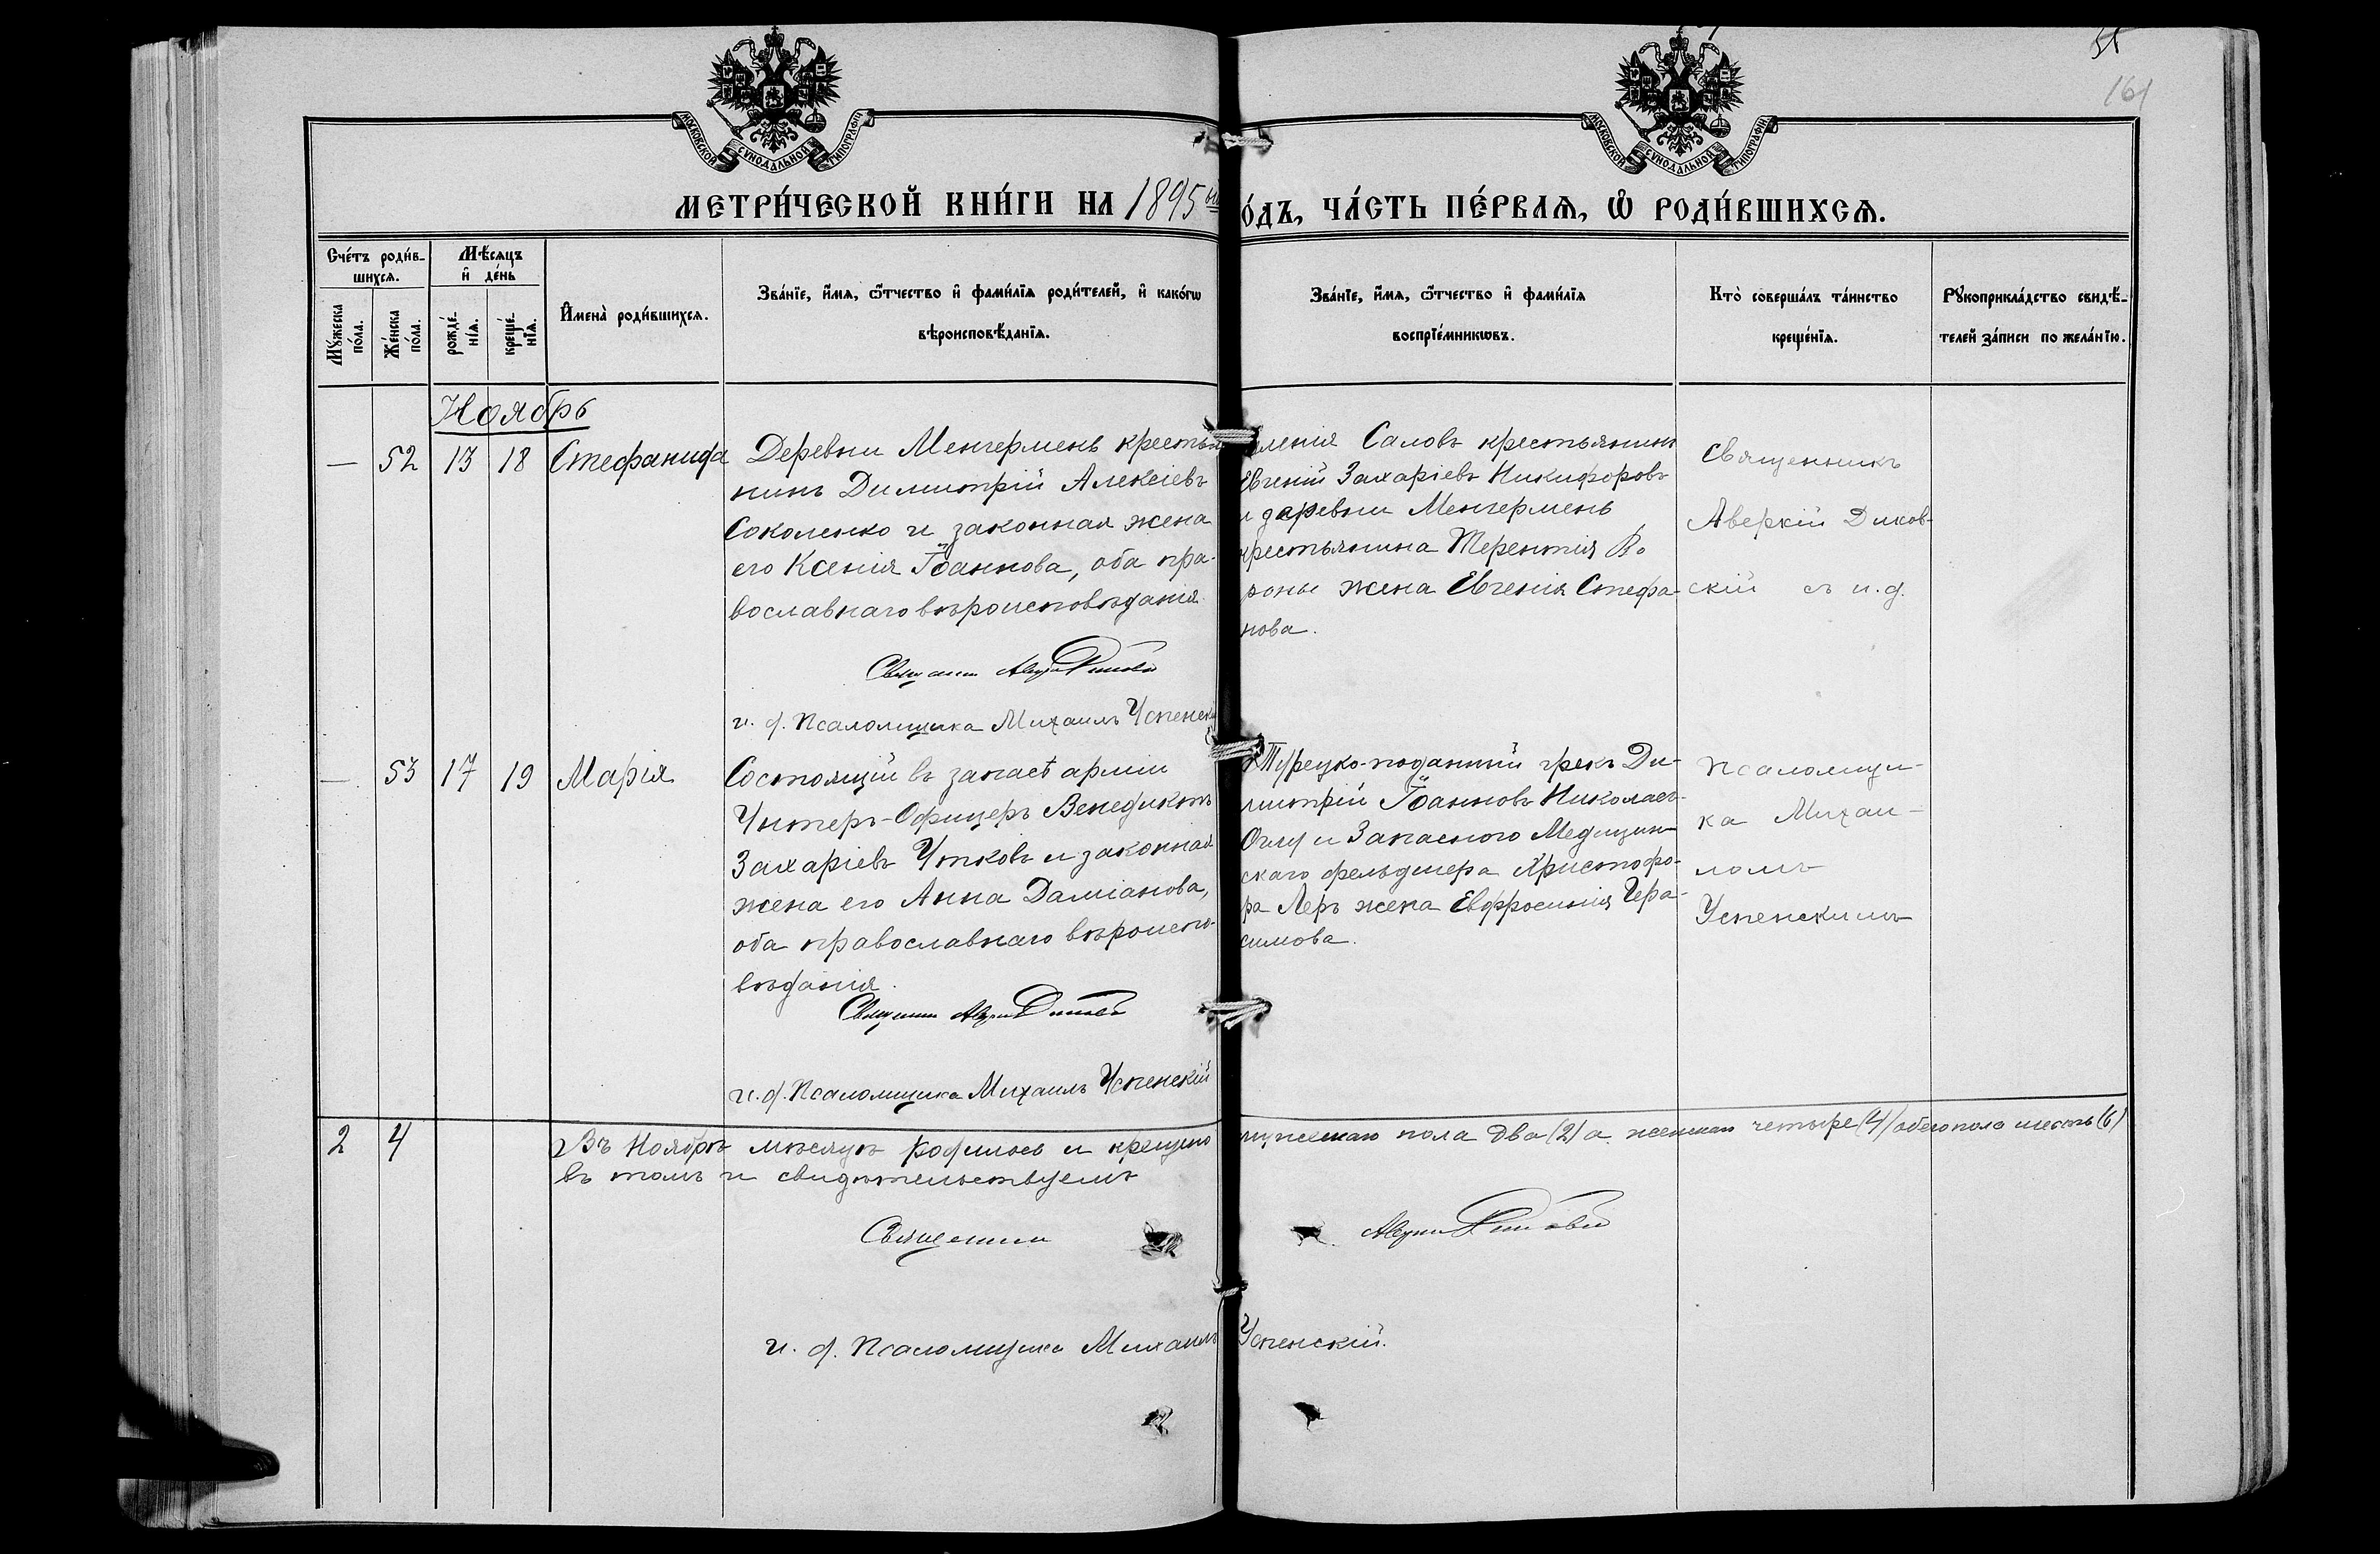 51
161
МОСКОВСКОЙ СѴНОДАЛЬНОЙ ТИПОГРАФІИ
МОСКОВСКОЙ СѴНОДАЛЬНОЙ ТИПОГРАФІИ
МЕТРИ́ЧЕСКОЙ КНИ́ГИ НА 1895ый
О́ДЪ, ЧА́СТЬ ПЕ́РВАѦ, Ѡ҆ РОДИ́ВШИХСѦ.
Сче́тъ роди́в-
шихсѧ.
Мꙋ́жеска по́ла.
Же́нска по́ла.
Мѣ́сѧцъ и҆ де́нь
рожде́-нїѧ.
креще́-нїѧ.
И҆мена̀ роди́вшихсѧ.
Зва́нїе, и҆́мѧ, ѻ҆́тчество и҆ фами́лїѧ роди́телей, и҆ како́гѡ
вѣроисповѣ́данїѧ.
Зва́нїе, и҆́мѧ, ѻ҆́тчество и҆ фами́лїѧ
воспрїе́мникѡвъ.
Кто̀ соверша́лъ та́инство
креще́нїѧ.
Рꙋкоприкла́дство свидѣ́-
телей за́писи по жела́нїю.
Ноябрь
— 52 13 18 Стефанида
Деревни Менгермень крестья
нинъ Димитрій Алексіевъ
Соколенко и законная жена
его Ксенія Іоаннова, оба пра-
вославнаго вѣроисповѣданія.
Священник
и. д. Псаломщика Михаилъ Успенскі
менія Саловъ крестьянинъ
Евгеній Захаріевъ Никифоровъ
и деревни Менгермень
крестьянина Терентія Во
роны жена Евгенія Стефа-
нова.
Священникъ
Аверкій Диков-
скій съ и. д.
— 53 17 19 Марія
Состоящій въ запасѣ арміи
Унтеръ-Офицеръ Венедиктъ
Захаріевъ Утковъ и законная
жена его Анна Даміанова,
оба православнаго вѣроиспо-
вѣданія.
Священник
и. д. Псаломщика Михаилъ Успенскій
Турецко-поданный грекъ Ди-
митрій Іоанновъ Николаев-
Оглу и Запасного Медицин-
скаго фельдшера Христофо-
ра Леръ жена Евфросинія Гера-
симова.
Псаломщи-
ка Михаи-
ломъ
Успенскимъ
2 4
Въ Ноябрѣ мѣсяцѣ родилось и крещено мужескаго пола два (2) а женскаго четыре (4) обего пола шесть (6)
въ томъ и свидѣтельствуемъ
Священник
и. д. Псаломщика Михаилъ Успенскій.